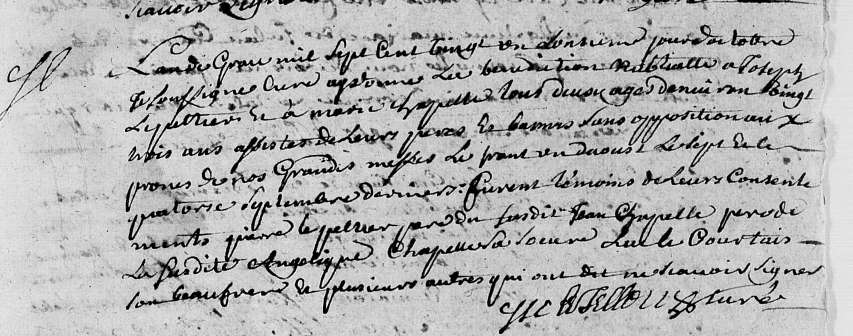 Lan de Grace mil Sept Cent vingt un onsieme jour doctobre
Je soussigné Curé ay donné La benediction Nuptialle a Joseph
Lepeltier & à marie Chapelle tous deux agés denviron vingt
trois ans assistés de Leurs peres Les bannis sans opposition aux
prones de nos Grandes messes Le trent un daoust Le Sept & le
quatorse Septembre derniers: furent temoins de Leurs Consente
ments pierre lepeltier pere du susdit Jean Chapelle pere de
La susdite Angelique Chapelle Sa Soeure Luc le Courtais
Son beaufrere & plusieurs autres qui ont dit ne scavoir Signer
Curé